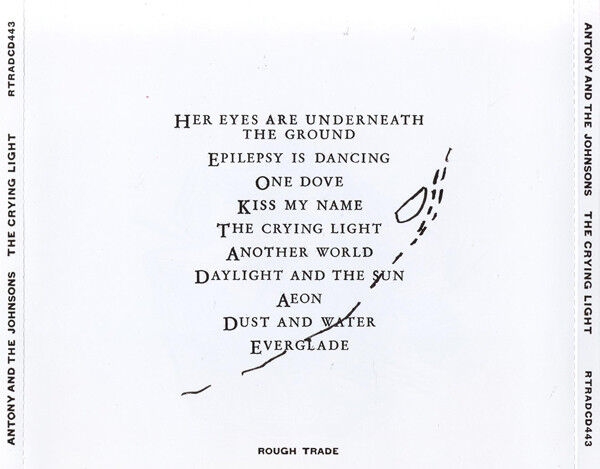 ANTONY AND THE JOHNSONS THE CRYING LIGHT RTRADCD443
HER EYES ARE UNDERNEATH
THE GROUND
EPILEPSY IS DANCING
ONE DOVE
KISS MY NAME
THE CRYING LIGHT
ANOTHER WORLD
DAYLIGHT AND THE SUN
AEON
DUST AND WATER
EVERGLADE
ROUGH TRADE
ANTONY AND THE JOHNSONS THE CRYING LIGHT RTRADCD443